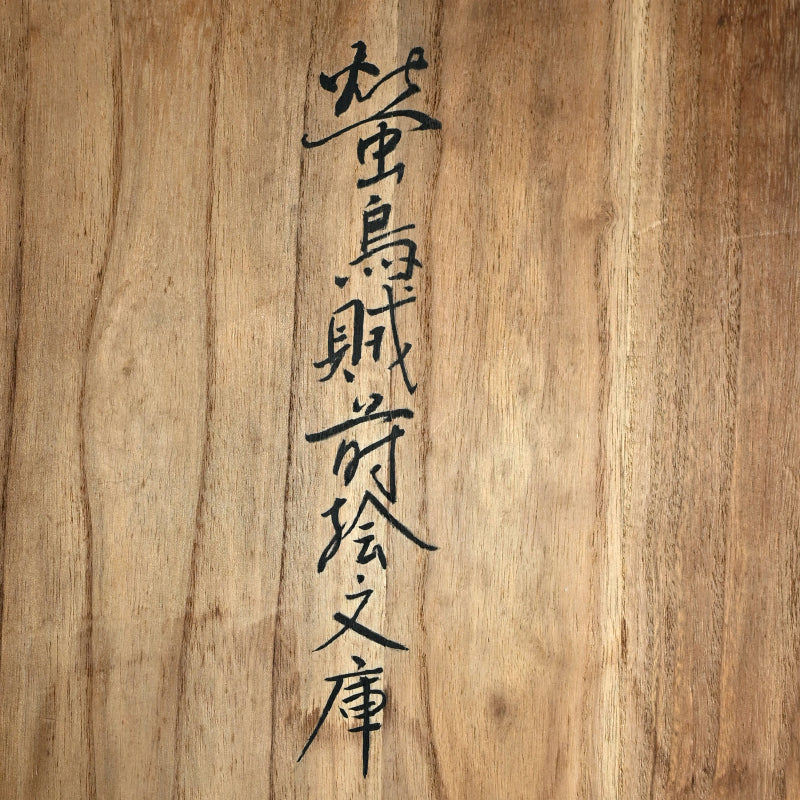 螢烏賊蒔絵文庫